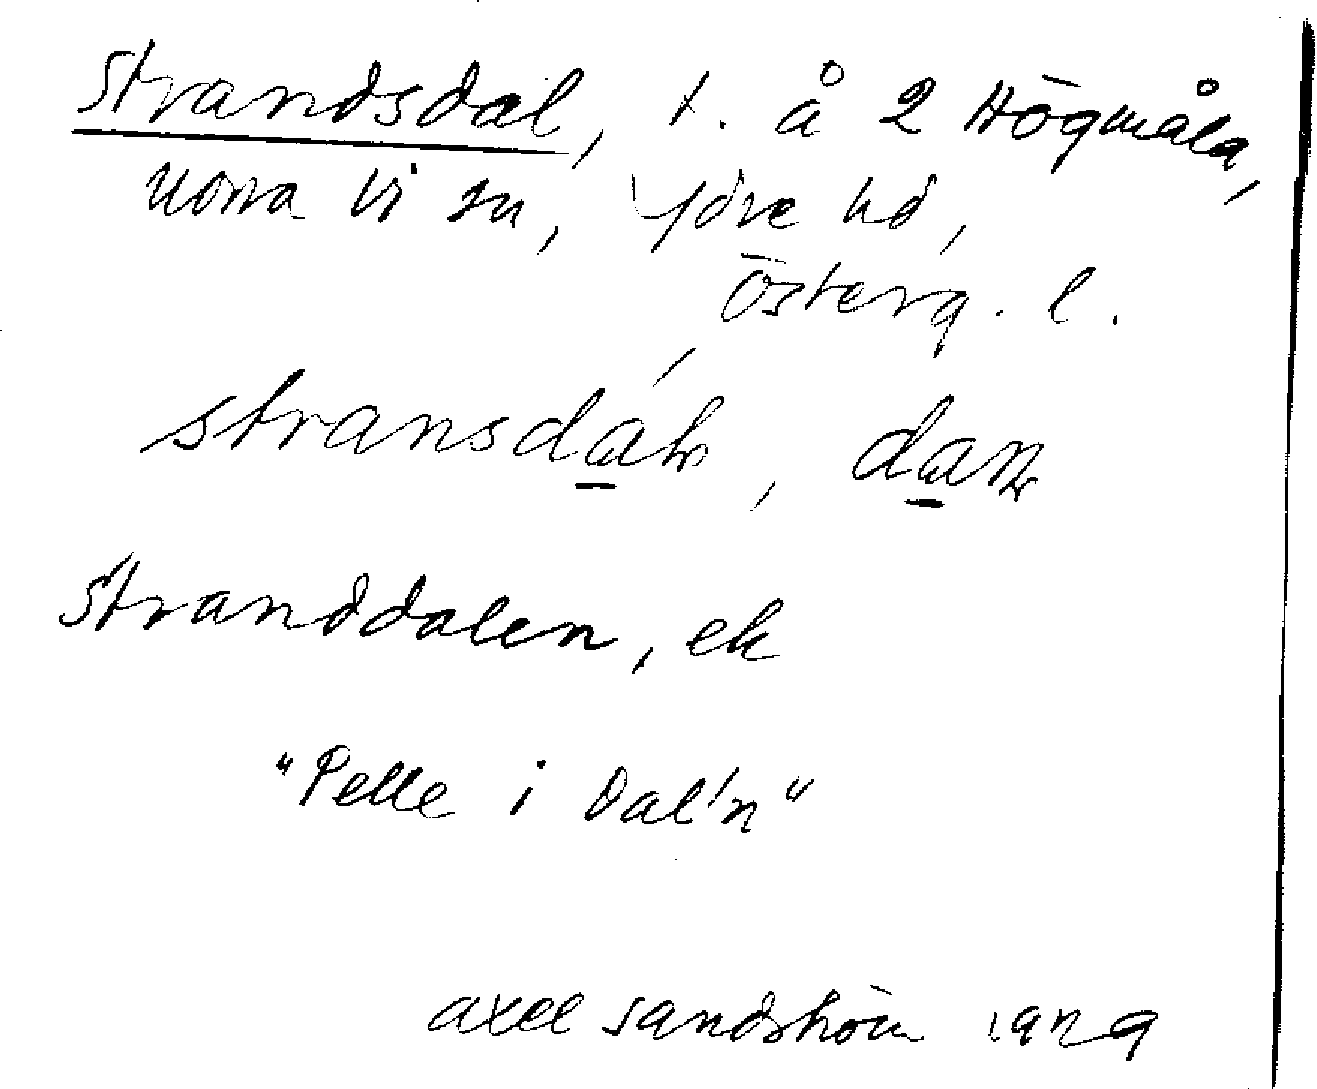 Strandsdal, t. å 2 Högmåla,
Norra Vi sn, Ydre hd,
Österg. l.
stransdal,
Stranddalen, ek
"Pelle i Dal'n"
Axel Sandström